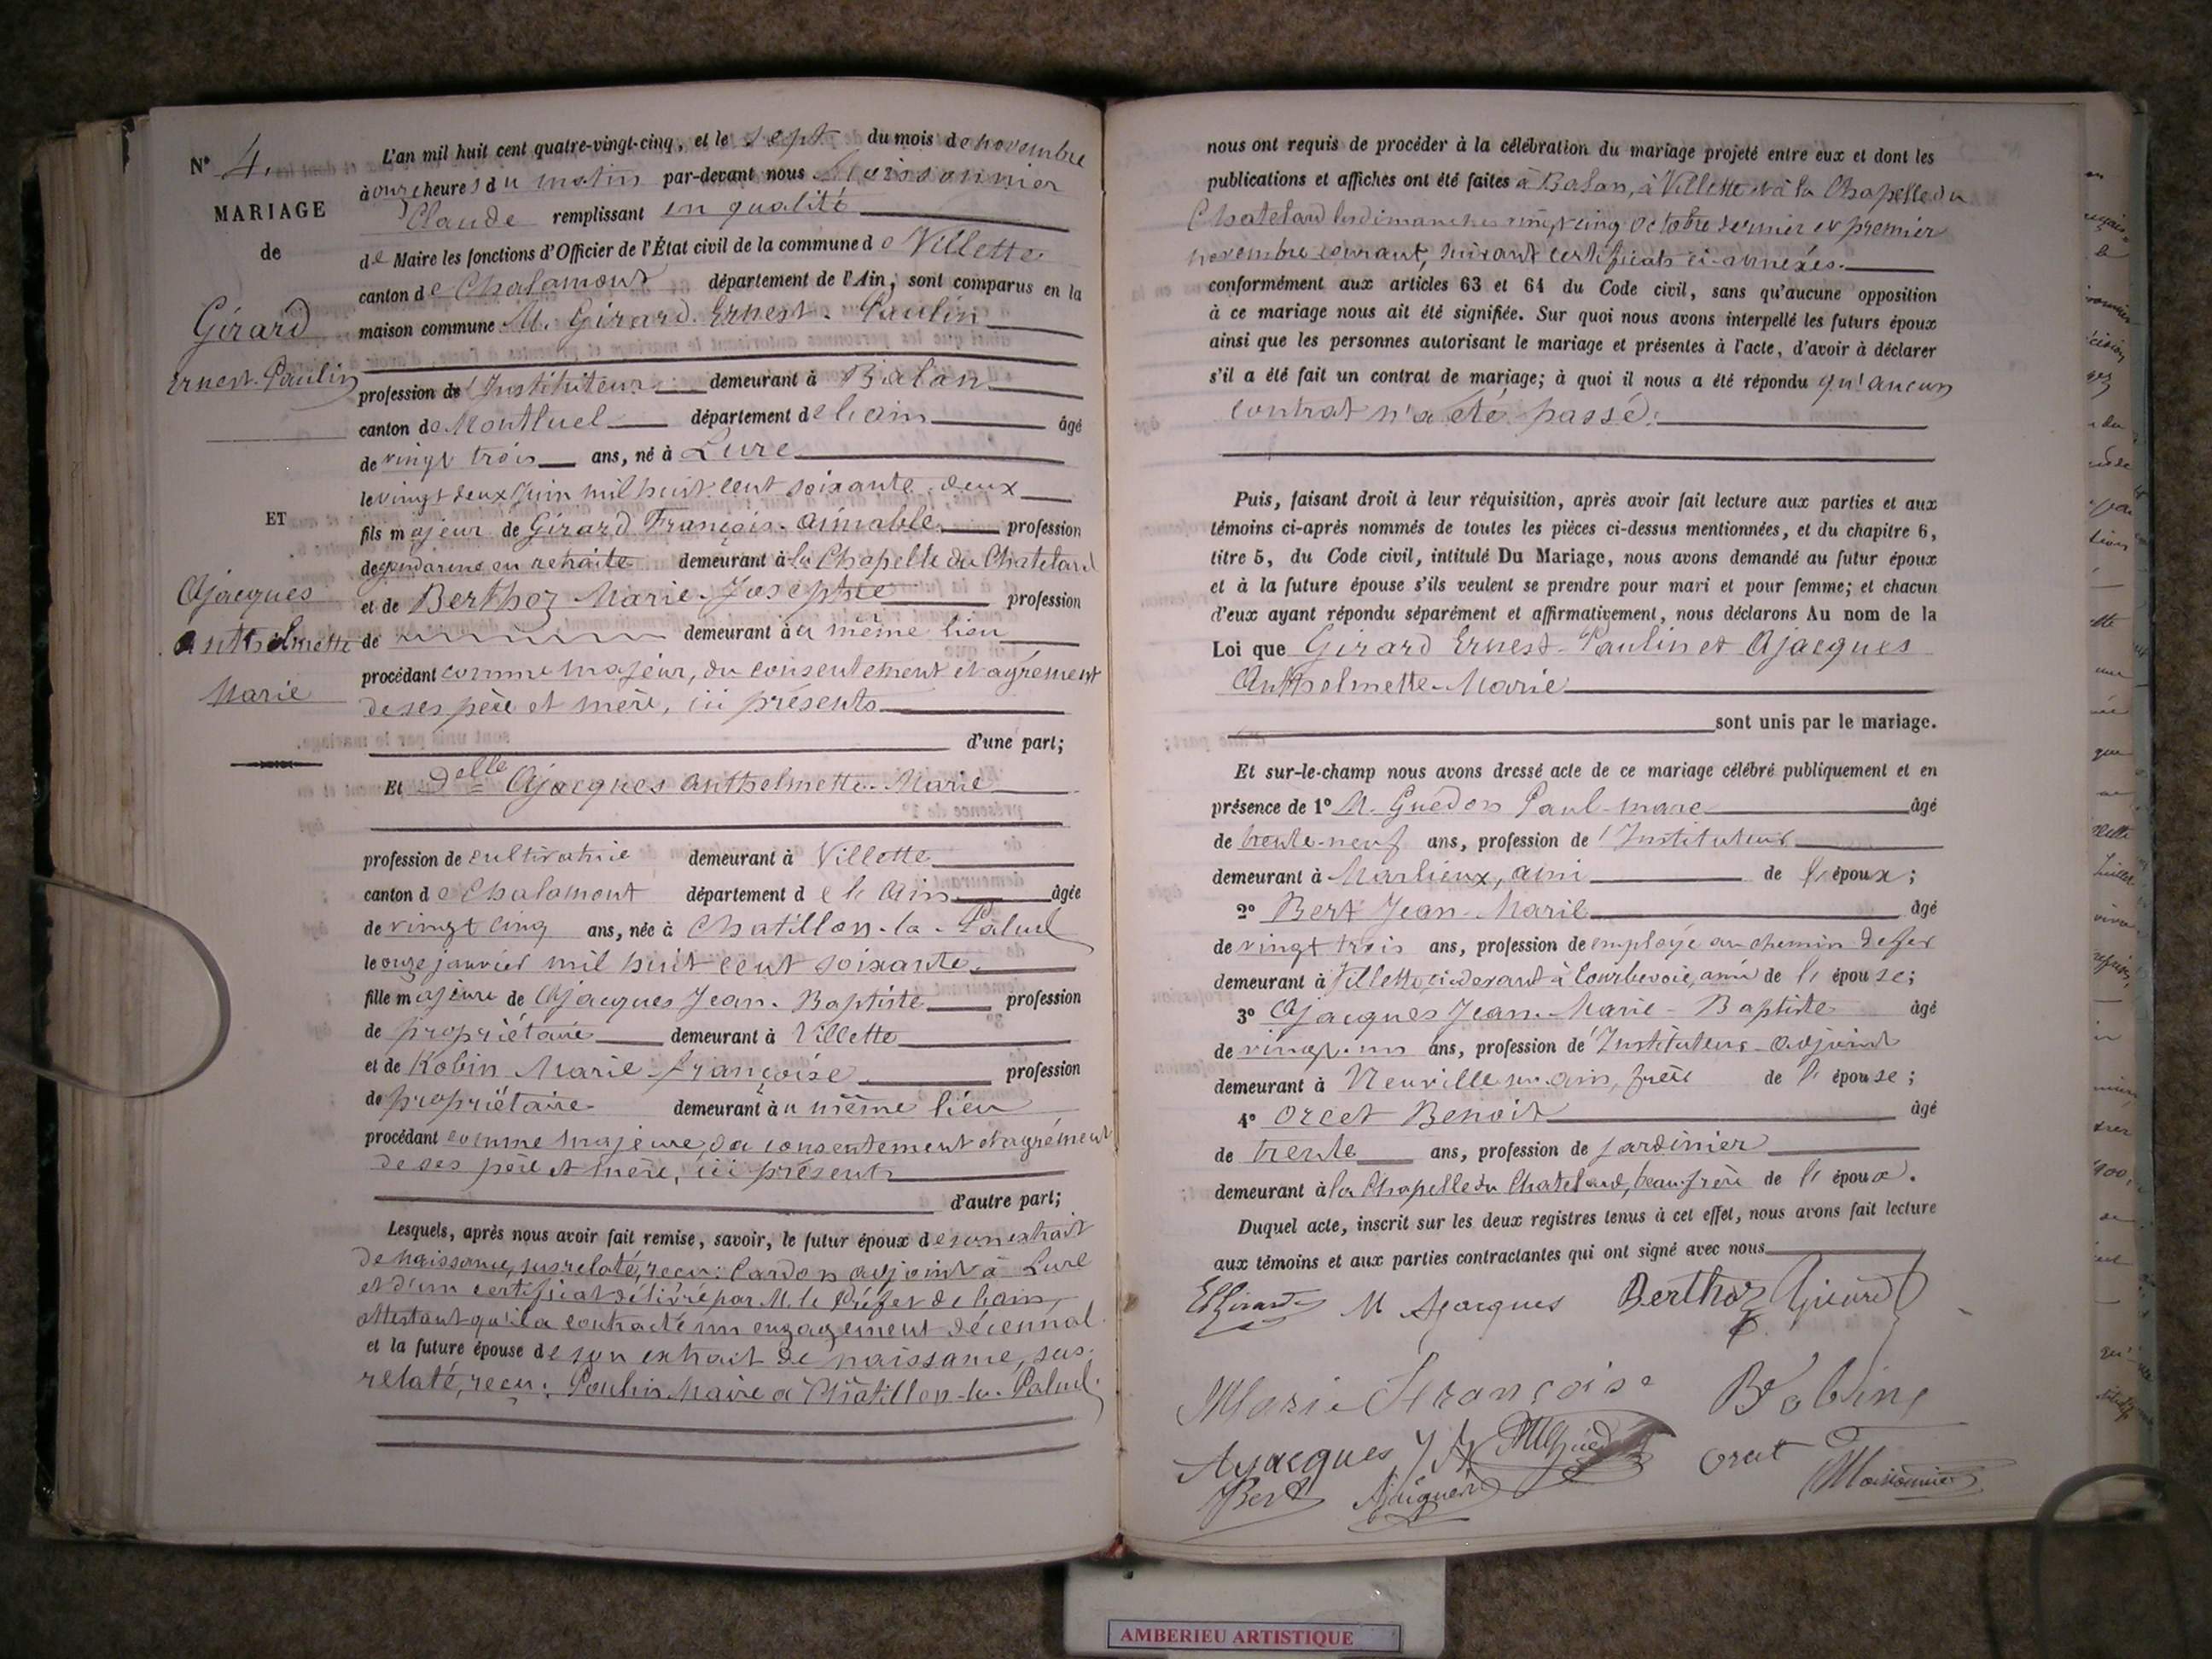 N° 4.
MARIAGE
de
Girard
Ernest-Paulin
ET
Ajacques
Anthelmette
Marie
L'an mil huit cent quatre-vingt-cinq, et le sept du mois de novembre
à onze heures du matin par-devant nous Moissonnier
Claude remplissant en qualité
de Maire les fonctions d'Officier de l'État civil de la commune de Villette
canton de Chalamont département de l'Ain, sont comparus en la
maison commune M. Girard Ernest-Paulin
profession de l'Instituteur demeurant à Balan
canton de Montluel département de l'ain âgé
de vingt trois ans, né à Lure
le vingt deux Juin mil huit cent soixante deux
fils majeur de Girard François-aimable profession
de gendarme en retraite demeurant à la Chapelle du Chatelard
et de Berthoz Marie-Josephte profession
de demeurant au même lieu
procédant comme majeur, du consentement et agrément
de ses père et mère, ici présents
d'une part;
Et Delle Ajacques anthelmette-Marie
profession de cultivatrice demeurant à Villette
canton de Chalamont département de l'Ain âgée
de vingt cinq ans, née à Chatillon-la-Palud
le onze janvier mil huit cent soixante
fille majeure de Ajacques Jean-Baptiste profession
de propriétaire demeurant à Villette
et de Robin Marie-françoise profession
de propriétaire demeurant au même lieu
procédant comme majeure, du consentement et agrément
de ses père et mère, ici présents
d'autre part;
Lesquels, après nous avoir fait remise, savoir, le futur époux de son extrait
de naissance, susrelaté, reçu: Cardon adjoint à Lure
et d'un certificat délivré par M. le Préfet de l'ain,
attestant qu'il a contracté un engagement décennal
et la future épouse de son extrait de naissance, sus-
relaté, reçu: Poulin Maire à Châtillon-la-Palud.
nous ont requis de procéder à la célébration du mariage projeté entre eux et dont les
publications et affiches ont été faites à Balan, à Villette et à la Chapelle du
Chatelard les dimanches vingt cinq Octobre dernier et premier
novembre courant, suivant certificats ci-annexés.
conformément aux articles 63 et 64 du Code civil, sans qu'aucune opposition
à ce mariage nous ait été signifiée. Sur quoi nous avons interpellé les futurs époux
ainsi que les personnes autorisant le mariage et présentes à l'acte, d'avoir à déclarer
s'il a été fait un contrat de mariage; à quoi il nous a été répondu qu'aucun
contrat n'a été passé.
Puis, faisant droit à leur réquisition, après avoir fait lecture aux parties et aux
témoins ci-après nommés de toutes les pièces ci-dessus mentionnées, et du chapitre 6,
titre 5, du Code civil, intitulé Du Mariage, nous avons demandé au futur époux
et à la future épouse s'ils veulent se prendre pour mari et pour femme; et chacun
d'eux ayant répondu séparément et affirmativement, nous déclarons Au nom de la
Loi que Girard Ernest-Paulin et Ajacques
Anthelmette-Marie
sont unis par le mariage.
Et sur-le-champ nous avons dressé acte de ce mariage célébré publiquement et en
présence de 1° M. Guédon Paul-marc âgé
de trente-neuf ans, profession de l'Instituteur
demeurant à Marlieux, ami de l'époux;
2° Bert Jean-Marie âgé
de vingt trois ans, profession de employé au chemin de fer
demeurant à Villette, ci-devant à Courbevoie, ami de l'épouse;
3° Ajacques Jean-Marie-Baptiste âgé
de vingt-un ans, profession de l'Instituteur-adjoint
demeurant à Neuville sur ain, frère de l'épouse;
4° Orcet Benoit âgé
de trente ans, profession de jardinier
demeurant à la Chapelle du Chatelard, beau-frère de l'époux.
Duquel acte, inscrit sur les deux registres tenus à cet effet, nous avons fait lecture
aux témoins et aux parties contractantes qui ont signé avec nous
EGirard M Ajacques Berthoz Girard
Marie Françoise Robin
Ajacques Orcet
Bert Moissonnier
AMBERIEU ARTISTIQUE